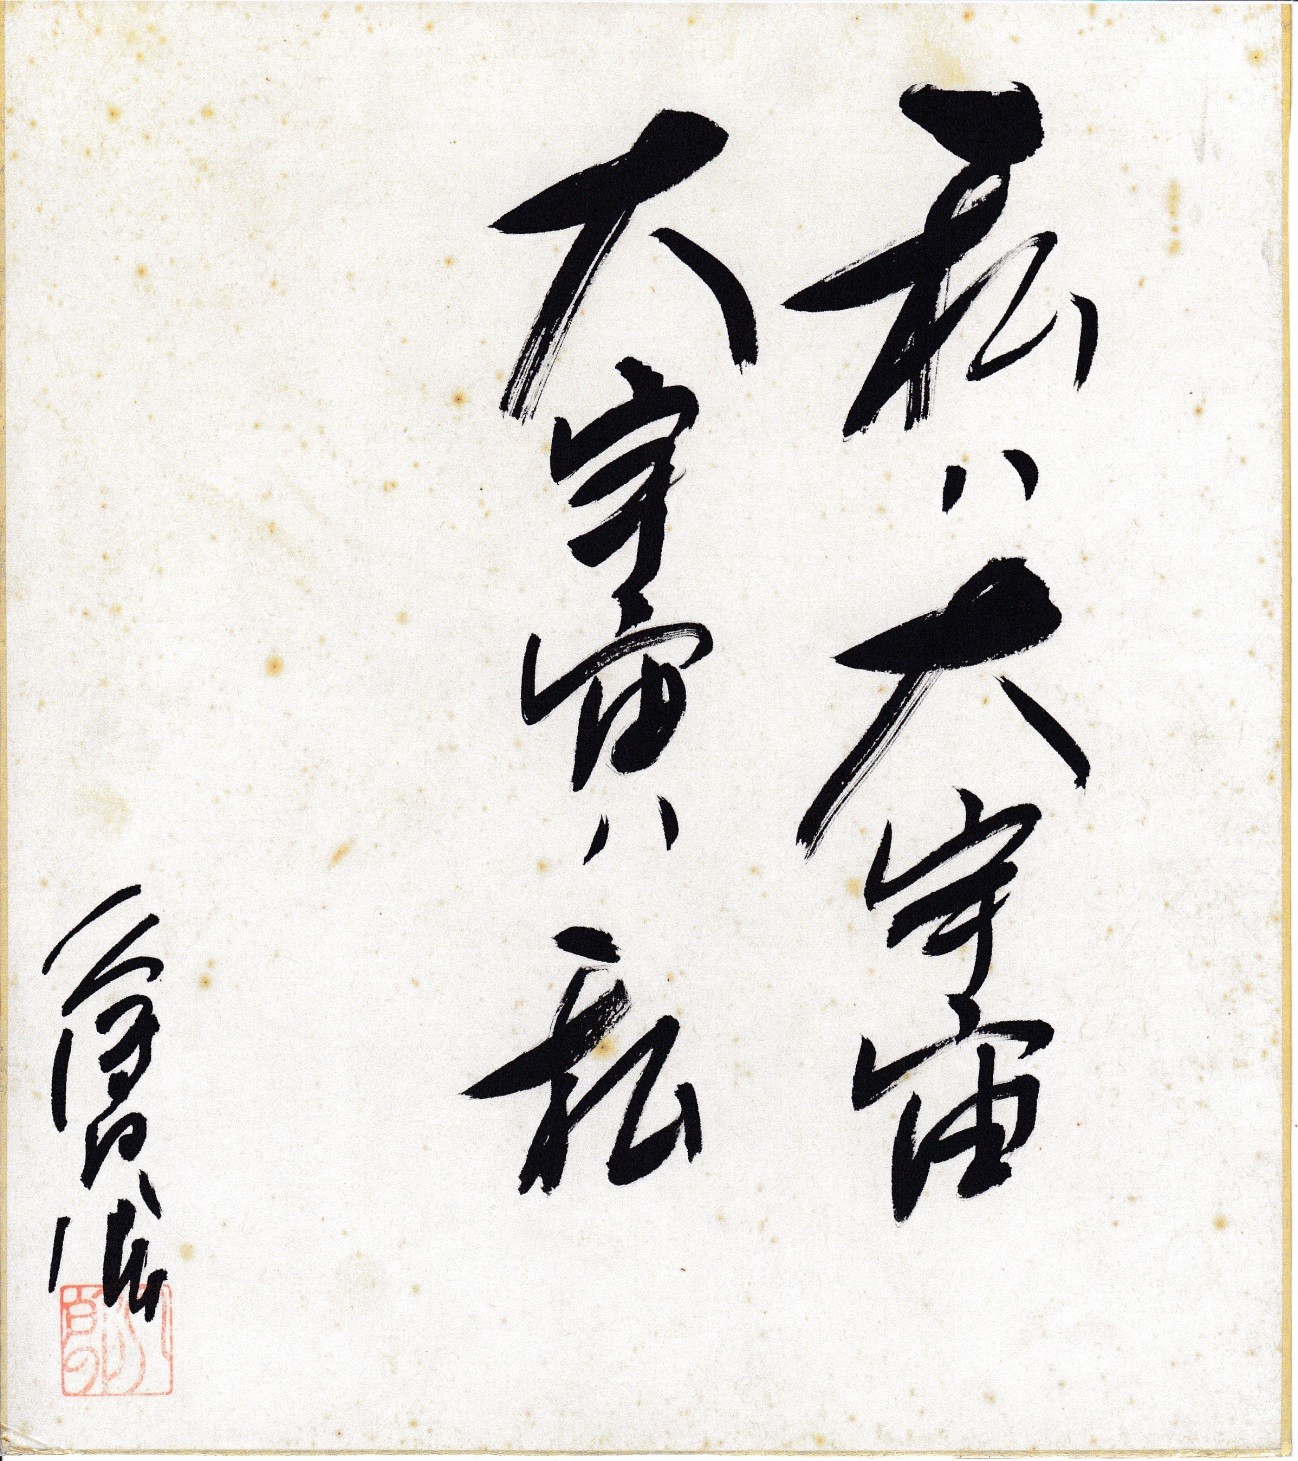 私ハ大宇宙
大宇宙ハ私